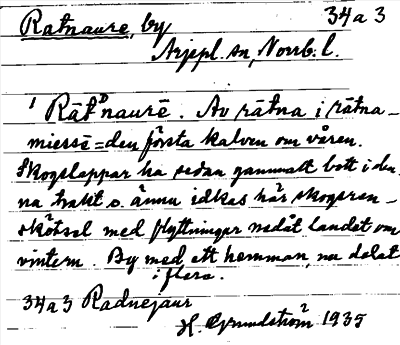 Ratnaure, by 34a3
Arjepl. sn, Norrb. l.
1 Rātᵇnaurē. Av rātna i rātna-
miessē = den första kalven om våren.
Skogslappar ha sedan gammalt bott i den-
na trakt o. ännu idkas här skogsren-
skötsel med flyttningar nedåt landet om
vintern. By med ett hemman, nu delat
i flera.
34a3 Radnejaur
H. Grundström 1935